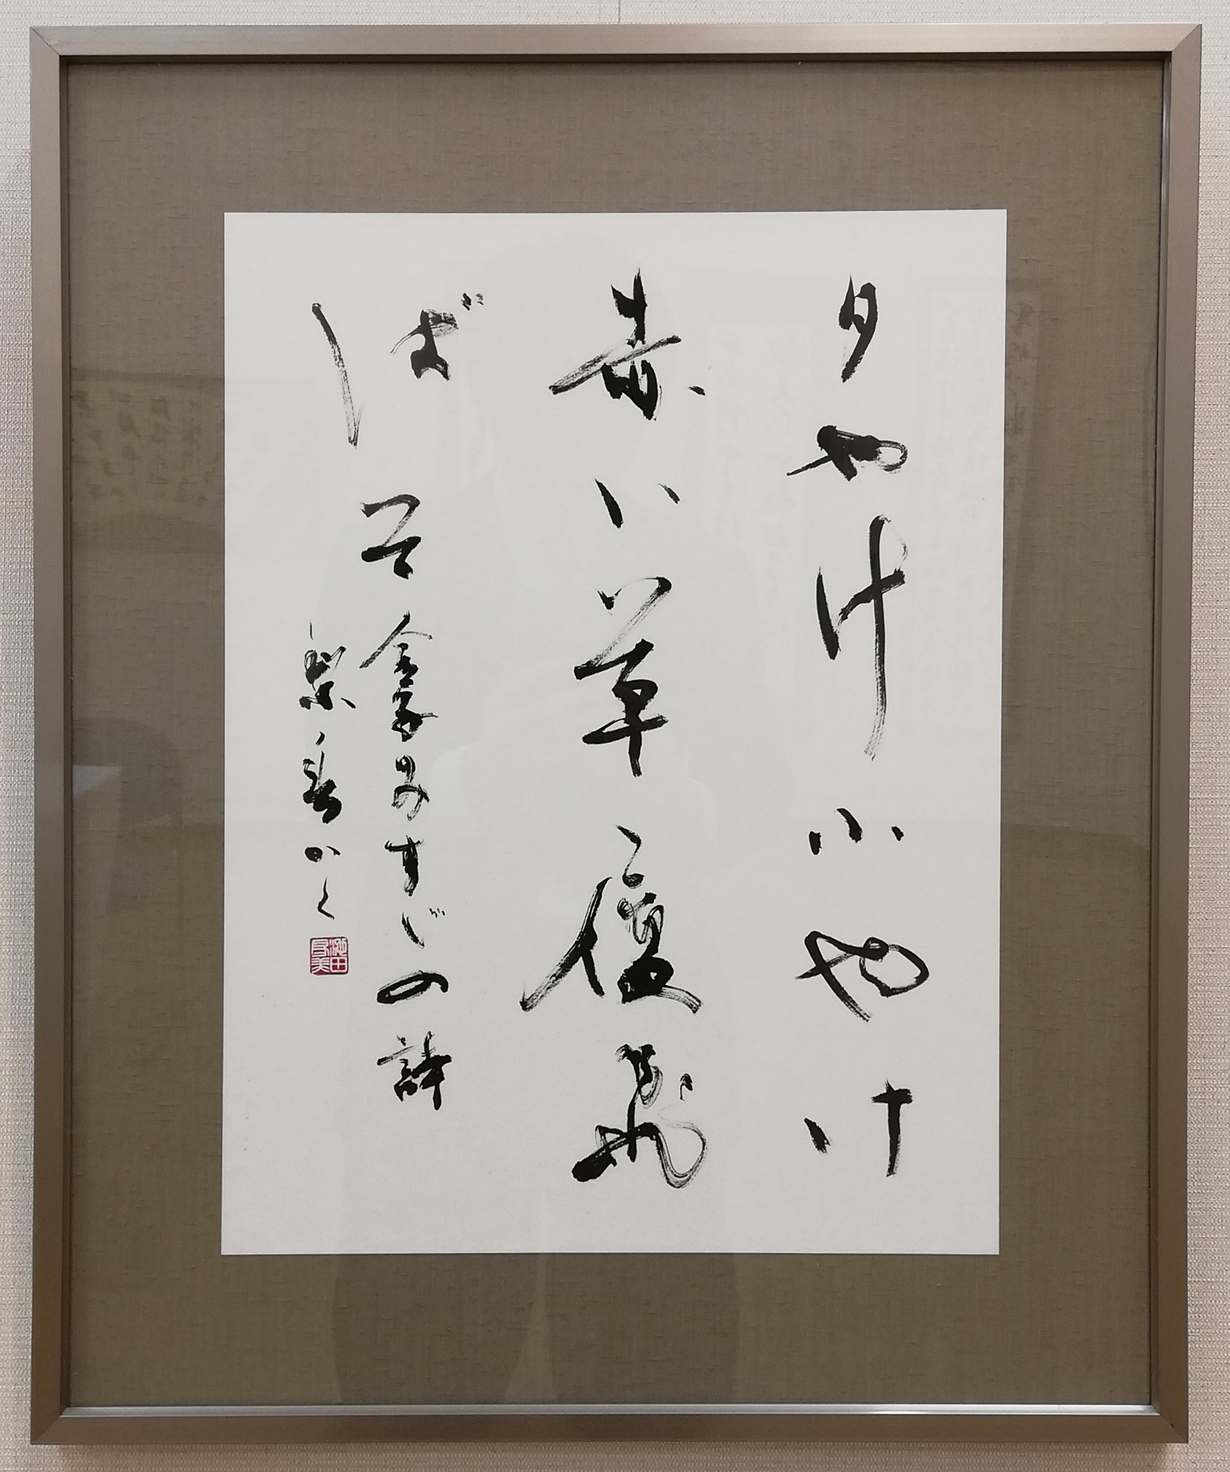 夕やけ小やけ
赤い草履飛
ばそ
金子みすゞの詩
かく